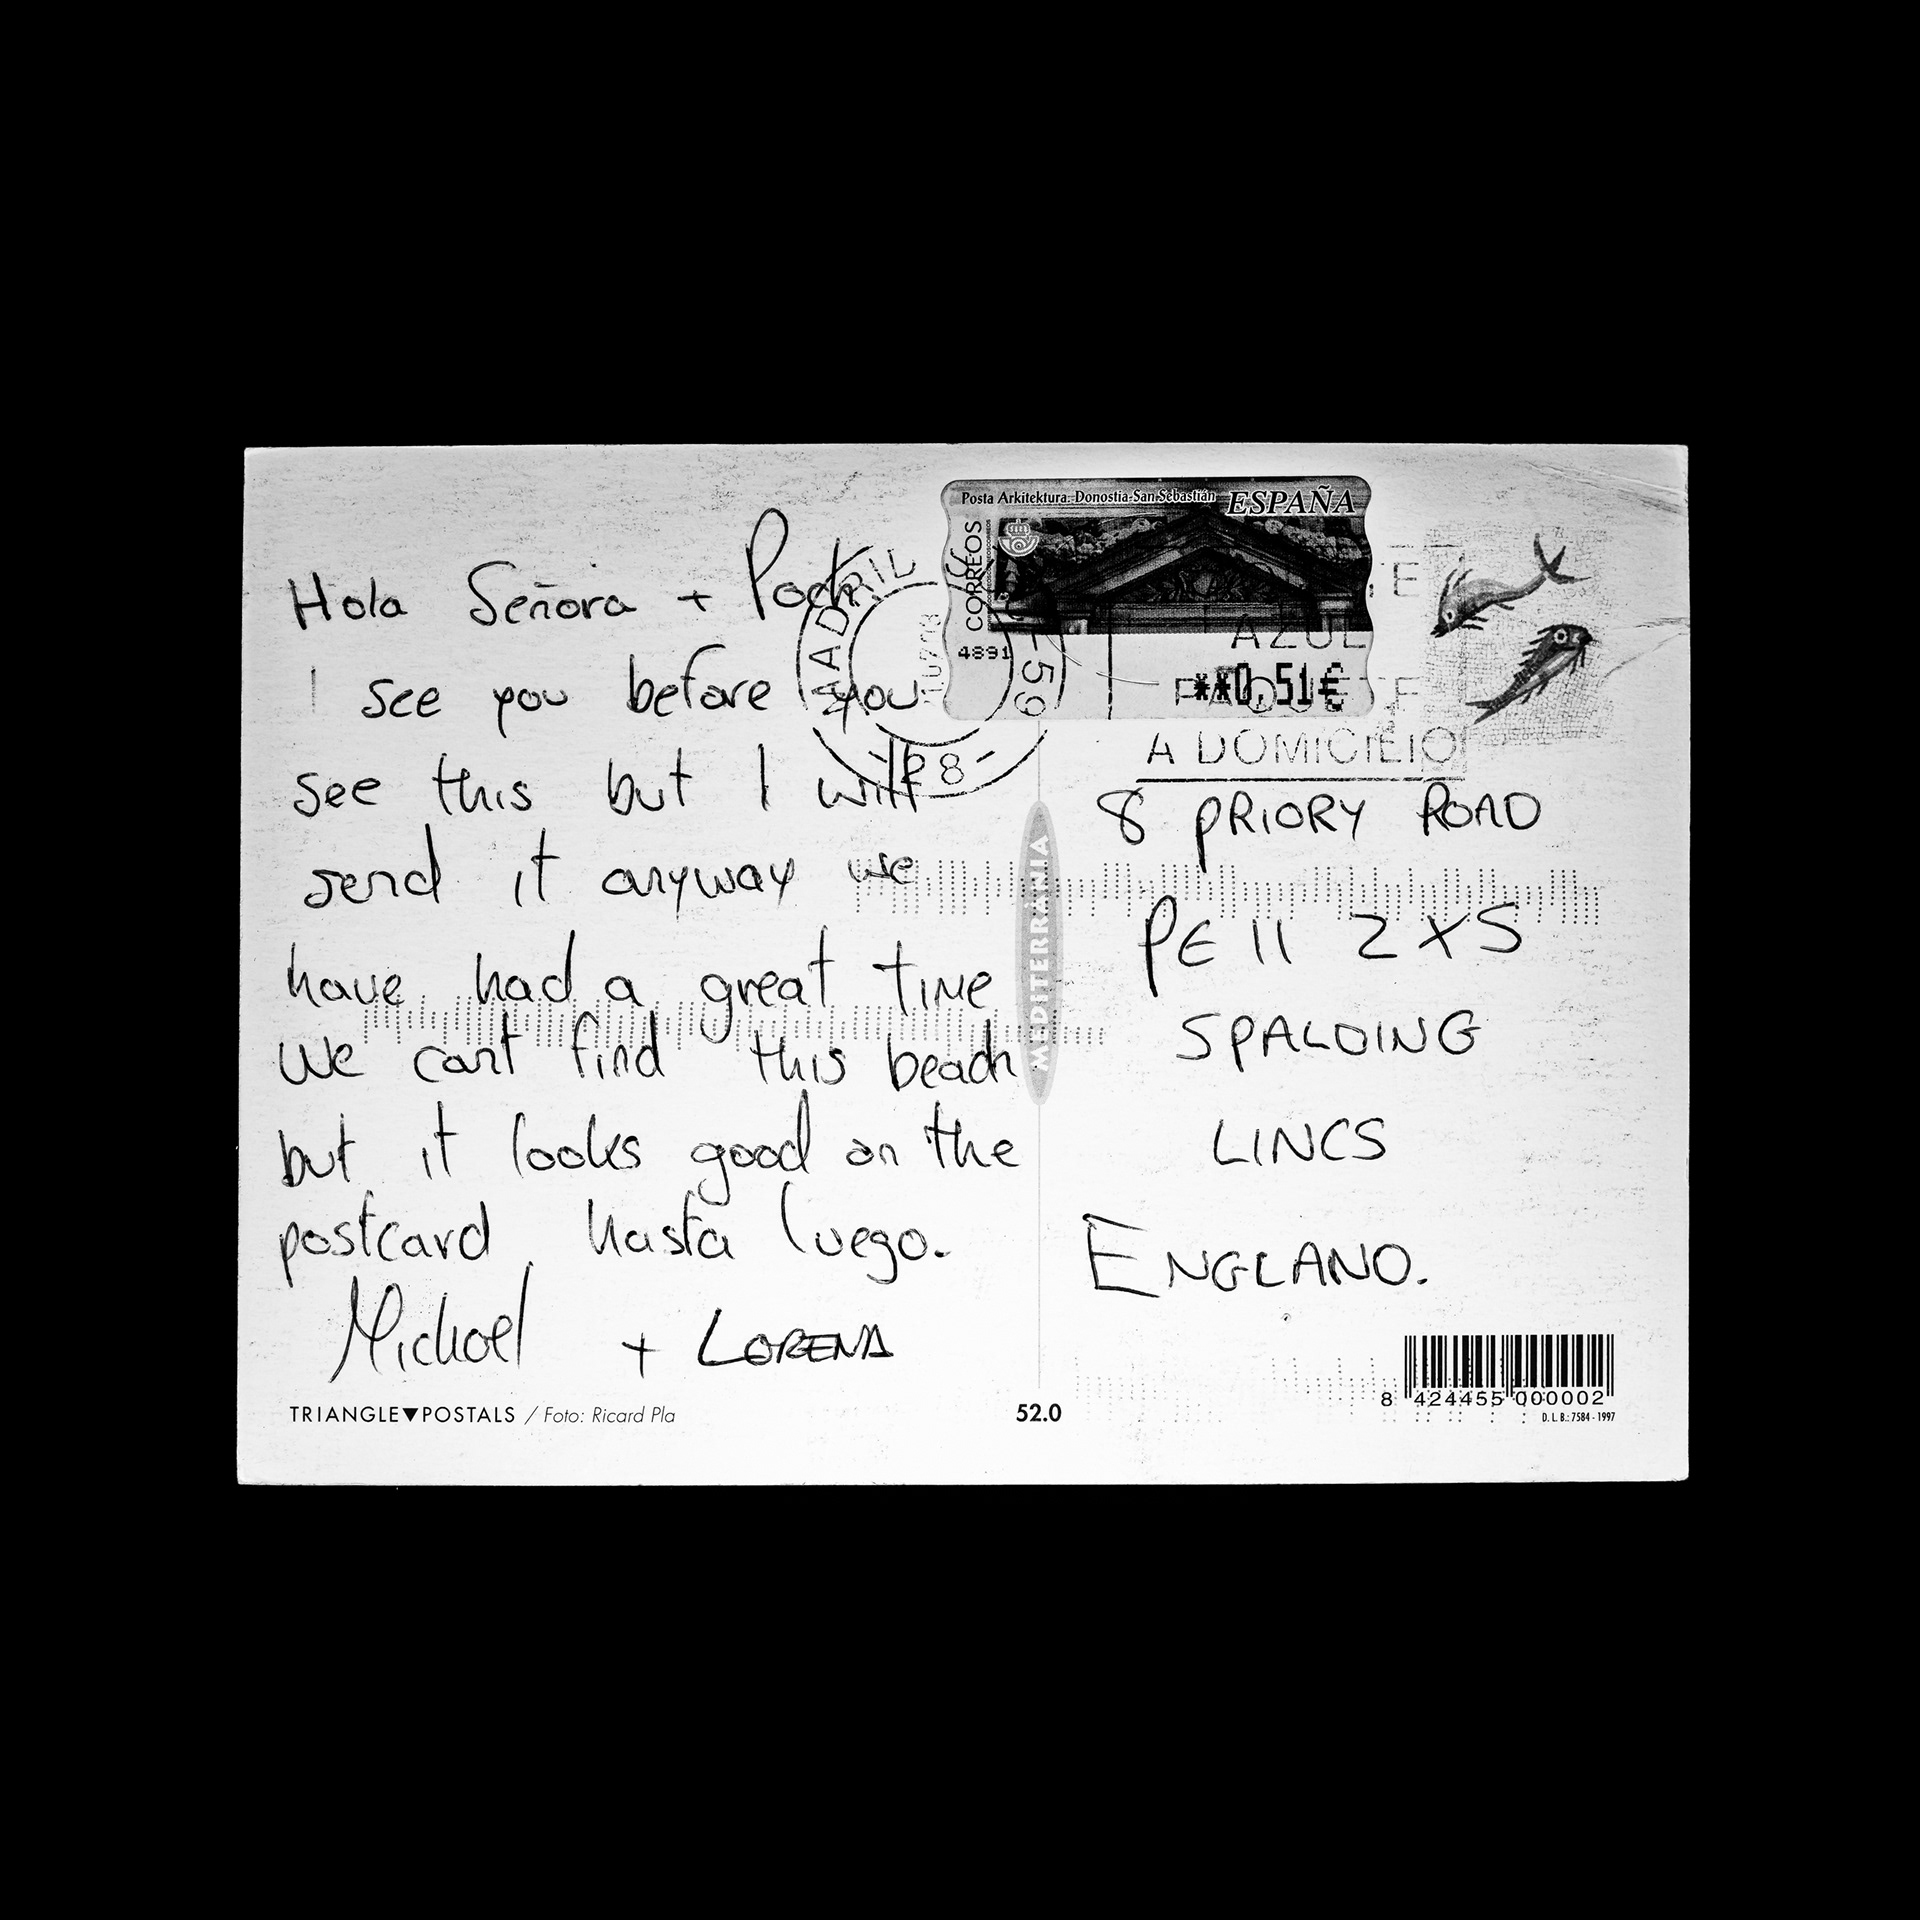 Hola Señora +
I see you before you
see this but I will
send it anyway we
have had a great time
We cant find this beach
but it looks good on the
postcard. hasta luego.
Michael + LORENA
TRIANGLE▼POSTALS / Foto: Ricard Pla
52.0
MEDITERRÀNIA
Posta Arkitektura. Donostia-San Sebastián ESPAÑA
CORREOS
4891
**0,51€
MADRID
28
AZUL
A DOMICILIO
8 PRIORY ROAD
PE11 2XS
SPALDING
LINCS
ENGLAND.
8 424455 000002
D. L. B.: 7584 - 1997